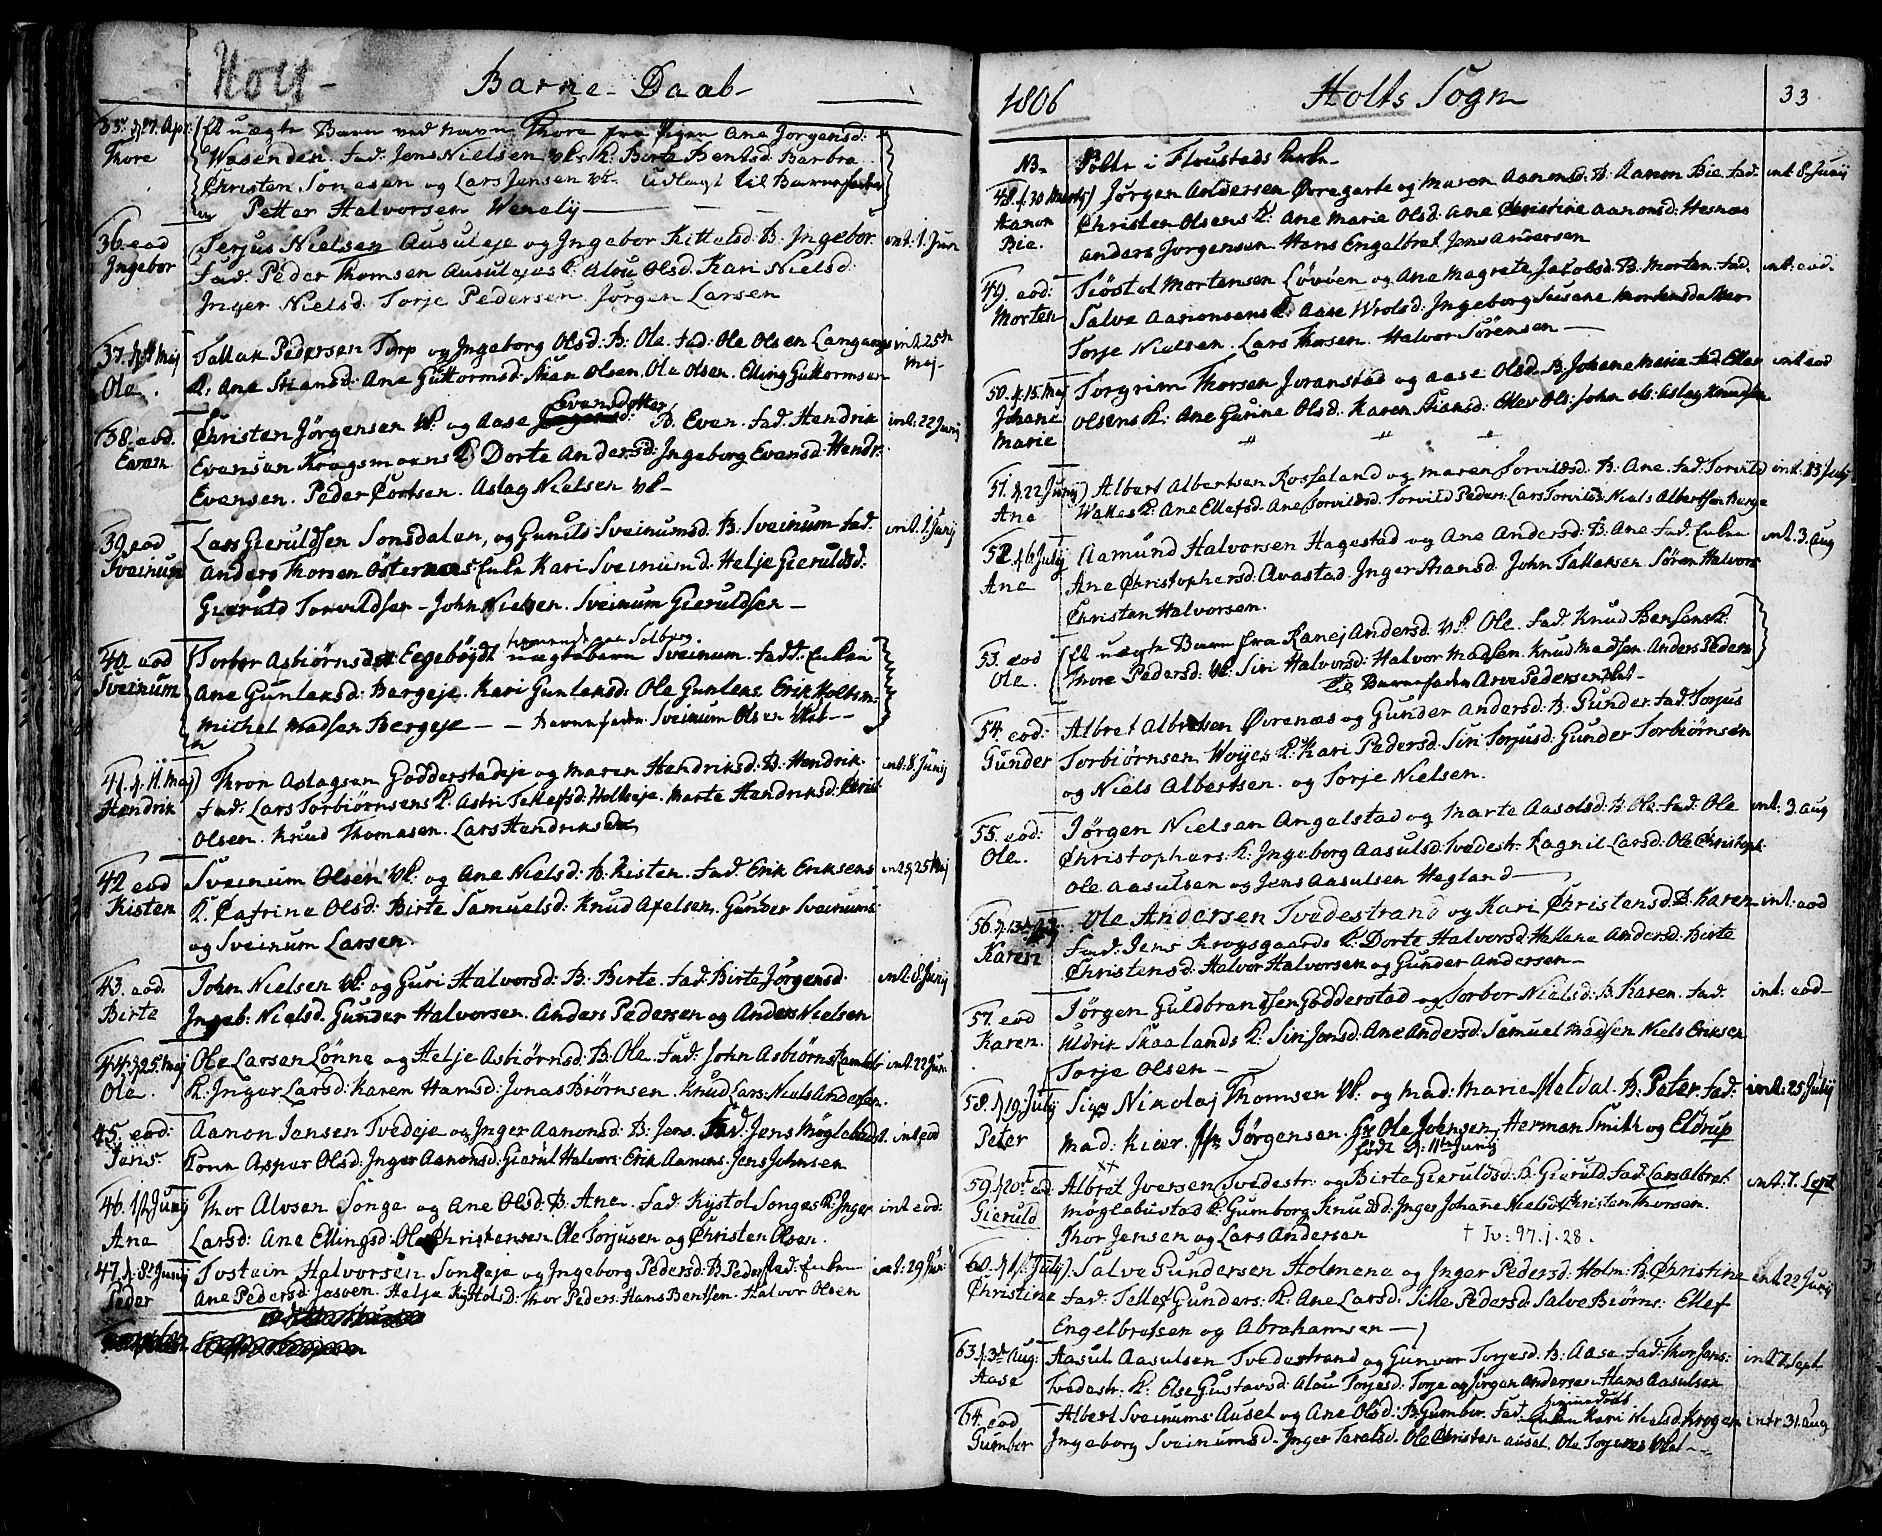 Holt-
Barne-Daab-
35. d. 27. Apr:
Thore
Et uægte Barn ved navn Thore fra Pigen Ane Jørgensd:
Wasenden. Fad: Jens Nielsen Barbra
Christen Sonesen og Lars Jensen udlagt til Barnefader
Petter Halvorsen
36. eod
Ingebor
Terjus Nielsen Ausuleje og Ingebor Kittelsd: B. Ingebor. int: 1. Jun
Fad: Peder Thomsen K: Alou Olsd: Kari Nielsd:
Inger Nielsd: Torje Pedersen. Jørgen Larsen
37. Maj
Ole
Tallak Pedersen Torp og Ingeborg Olsd: B: Ole. Fad: Ole Olsen Langangs int. 25de Maj-
K: Ane Stiansd: Ane Guttormsd: Stian Olsen, Ole Olsen. Elling Guttormsen
38. eod.
Even
Christen Jørgensen og Aase Evensdotter B. Even. Fad: Hendrik int: 22 Junij
Evensen Kragsmoens K: Dorte Andersd: Ingeborg Evensd: Hendr:
Evensen. Peder Aslag Nielsen
39. eod
Sveinum
Lars Gieruldsen Songdalen, og Gunild Sveinumsd: B: Sveinum Fad: int. 1. Junij
Anders Thorsen Østernæs Enke Kari Sveinumsd: Helje Gieruldsd:
Gieruld Torvildsen - John Nielsen. Sveinum Gieruldsen -
40. eod
Sveinum
Torbor Asbiørnsd: Eegebøydt uægtebarn Sveinum. Fadd: Enken
Ane Gunleksd: Bergeje. Kari Gunleksd: Ole Gunleks. Erik Holtsm:
Michel Madsen Bergeje - - Barnefader Sveinum Olsen
41. d. 11. Maj)
Hendrik
Thron Aslagsen Godderstadeje og Maren Hendriksd: B. Hendrik. int: 8. Junij
Fad: Lars Torbiørnsens K: Astri Tellefsd: Holteeje. Marte Hendriksd: Christ
Olsen. Knud Thomasen. Lars Hendriksen
42 eod
Kisten
Sveinum Olsen og Ane Nielsd: B. Kisten. Fad: Erik Eriksens int 25 Maj
K: Catrine Olsd: Birte Samuelsd: Knud Axelsen, Gunder Sveinums
og Sveinum Larsen.
43. eod.
Birte
John Nielsen og Guri Halvorsd: B: Birte. Fad: Birte Jørgensd. int: 8. Junij
Ingeb: Nielsd. Gunder Halvorsen. Anders Pedersen og Anders Nielsen
44. d. 25. Maj
Ole
Ole Larsen Lønne og Helje Asbiørnsd: B: Ole. Fad: John Asbiørns int: 22 Jun
K: Inger Larsd: Karen Hansd: Jonas Biørnsen. Knud Lars: Niels Andersen.
45. eod:
Jens.
Aanon Jensen Tvedeje og Inger Aanonsd: B: Jens. Fad: Jens Møglebust. int eod
Kone Aspar Olsd: Inger Aanonsd: Gierul Halvors: Erik Aanons. Jens Johnsen
46. 1ste Junij
Ane
Thor Alvsen Songe og Ane Olsd: B: Ane. Fad: Kystol Songes K: Inger int eod:
Larsd: Ane Ellingsd: Ole Christensen Ole Torjusen og Christen Olsen.
47. d. 8. Junij
Peder
Tostein Halvorsen Songeje og Ingeborg Pedersd: B. Peder Fad: Enken int: 29 Jun:
Ane Pedersd: Helje Kystolsd: Thor Peders: Hans Bentsen. Halvor Olsen
1806
Holts Sogn
33
NB- i Floustads Kirke-
48. d. 30 Martij)
Aanon
Bie.
Jørgen Andersen Øvregarte og Maren Aanonsd: B: Aanon Bie Fad: int 8 Junij
Christen Olsens K: Ane Marie Olsd: Ane Christine Aanonsd: Hesnæs
Anders Jørgensen Hans Engelbret Jens Andersen
49. eod:
Morten
Tiøstol Mortensen Løvøen og Ane Magrete Jacobsd: B: Morten. Fad. int: eod.
Salve Aanonsens K: Aase Wrolsd: Ingeborg Susane Mortensd:
Torje Nielsen. Lars Thorsen. Halvor Sørensen -
50. d. 15. Maj
Johane
Marie
Torgrim Thorsen Joranstad og Aase Olsd: B: Johane Marie Fad: Ellev int eod
Olsens K: Ane Gurine Olsd. Karen Stiansd: Ellev Ols: John Ols: Aslag Knudsen
51. d. 22 Junij)
Ane
Albert Albertsen Rosseland og Maren Torvildsd: B: Ane. Fad: Torvild int. 13 July
K: Ane Ellefsd: Ane Torvildsd. Torvild Peders: Lars Torvilds: Niels Albertsen Berge
52. d. 6. Julij
Ane
Aamund Halvorsen Hagestad og Ane Andersd: B: Ane Fad: Enken int. 3. Aug
Ane Christophersd: Avastad Inger Stiansd. John Tallaksen Søren Halvors
Christen Halvorsen.
53. eod
Ole.
Et uægte Barn fra Ranej Andersd. Ole. Fad: Knud Bensens K:
Thore Pedersd: Siri Halvorsd: Halvor Madsen. Knud Madsen. Anders Peders
Barnefaden Arve Pedersen
54. eod:
Gunder
Albret Albretsen Øvrenæs og Gunder Andersd: B. Gunder. Fad: Torjus
Torbiørnsen Woyes K: Kari Pedersd: Siri Torjusd: Gunder Torbiørnsen
og Niels Albertsen. og Torje Nielsen.
55. eod:
Ole.
Jørgen Nielsen Angelstad og Marte Aasolsd: B. Ole. Fad: Ole int: 3. Aug
Christophers: K: Ingeborg Aasulsd: Tvedestr: Ragnil Larsd: Ole Christoph:
Ole Aasulsen og Jens Aasulsen Hegland -
56. d. 13
Karen
Ole Andersen Tvedestrand og Kari Christensd: B. Karen int: eod
Fad: Jens Krogsgaards K: Dorte Halvorsd: Hellene Andersd: Birte
Christensd: Halvor Halvorsen og Gunder Andersen -
57. eod
Karen.
Jørgen Guldbrandsen Godderstad og Torbor Nielsd: B. Karen. Fad: int: eod-
Uldrik Skaalands K: Siri Jonsd: Ane Andersd: Samuel Madsen Niels Eriksen
Torje Olsen -
58. d. 19. Julij
Peter
Sigr Nikolaj Thomsen og Mad: Marie Meldal. B. Peter. Fad: int: 25 Julij
Mad: Kiær. Jørgensen. Hr Ole Johnsen, Herman Smith og Eldrup
født d: 11te Junij
59. d. 20. eod
Gieruld
Albret Iversen Tvedestr: og Birte Gieruldsd: B. Gieruld Fad: Lars Albret int. 7. Sept
Møglebustad K: Gumborg Knudsd: Inger Johane Nielsd: Christen Thorsen.
Thor Jensen og Lars Andersen
† Tv: 97. 1. 28.
60. d. Julij)
Christine
Salve Gundersen Holmene og Inger Pedersd: Holm: B. Christine int 22 Junij
Fad: Tellef Gunders: K: Ane Larsd: Sille Pedersd: Salve Biørns: Ellef
Engelbretsen og Abrahamsen -
63. d. 3de Aug:
Aase
Aasul Aasulsen Tvedestrand og Gunvor Torjesd: B: Aase. Fad: Thor Jens: int 7 Sept
Tvedestr: K: Else Gustavsd: Alou Torjesd: Torje og Jørgen Andersen Hans Aasulsen
64. eod
Gumber
Albert Sveinums: Auset og Ane Olsd: B: Gumber. Fad: Enken Kari Nielsd: Krogen intr 31. Aug
Ingeborg Sveinumsd. Inger Taralsd. Ole Christen Auset. Ole Torjeres